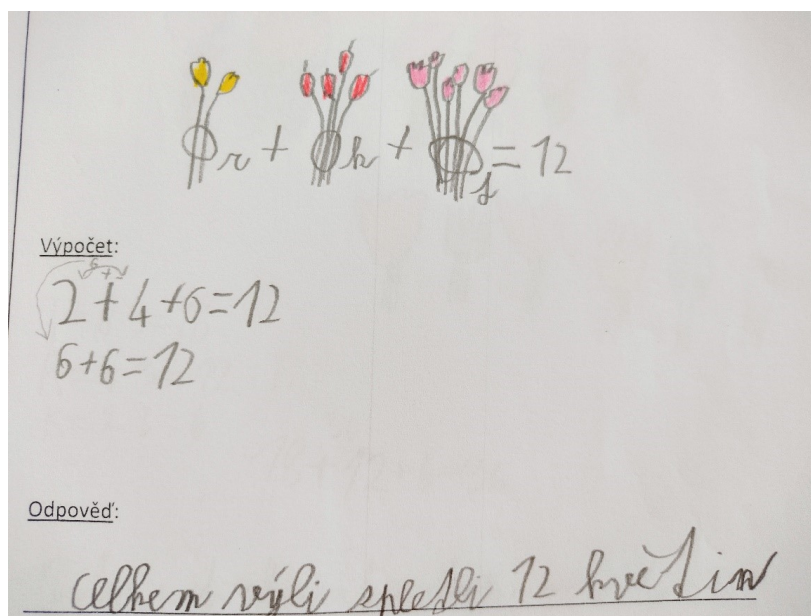 r + k + f = 12
Výpočet:
6
+
2+4+6=12
6+6=12
Odpověď:
celkem spletli 12 květin